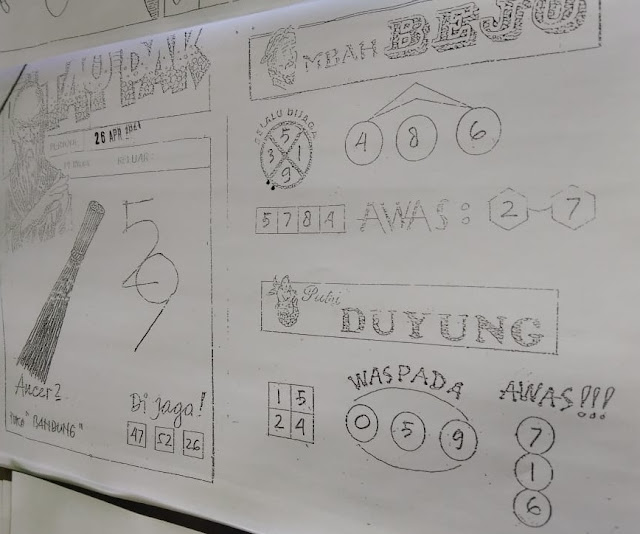 26 APR 2021
KELUAR
5
4
9
Ancer2
"BANDUNG"
Di jaga!
47 52 26
MBAH BEJO
SELALU DIJAGA
5
3 1
9
4 8 6
5 7 8 4
AWAS : 2 - 7
Putri
DUYUNG
1 5
2 4
WASPADA
0 5 9
AWAS!!!
7
1
6